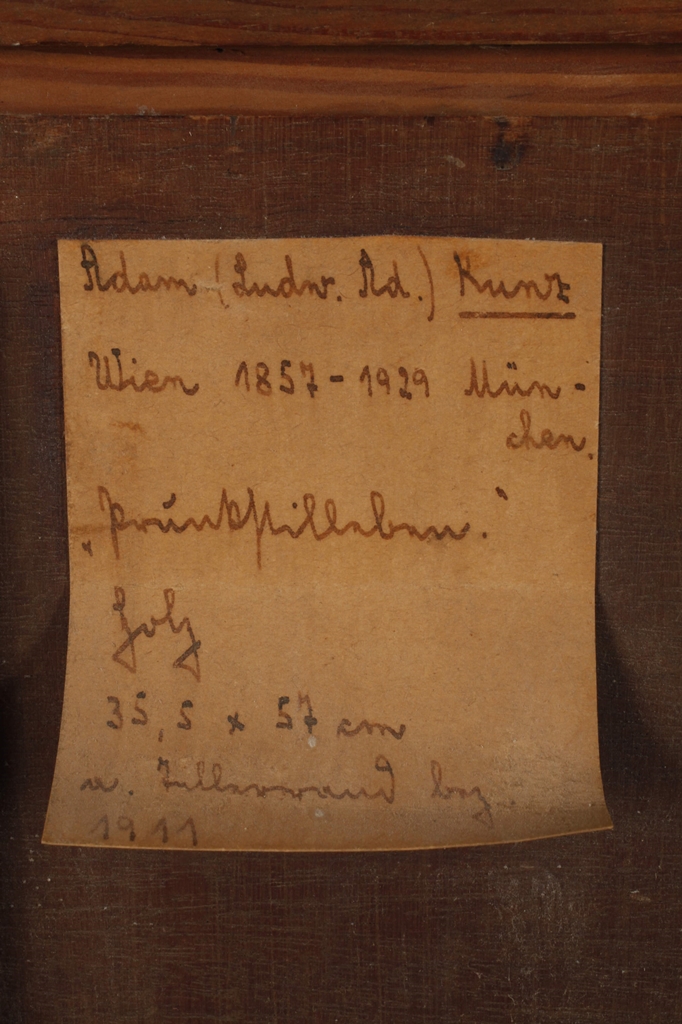 Adam (Ludw. Ad.) Kunz
Wien 1857 - 1929 Mün-
chen.
„Prunkstilleben."
Holz
35,5 x 57 cm
a. Tellerrand bez
1911